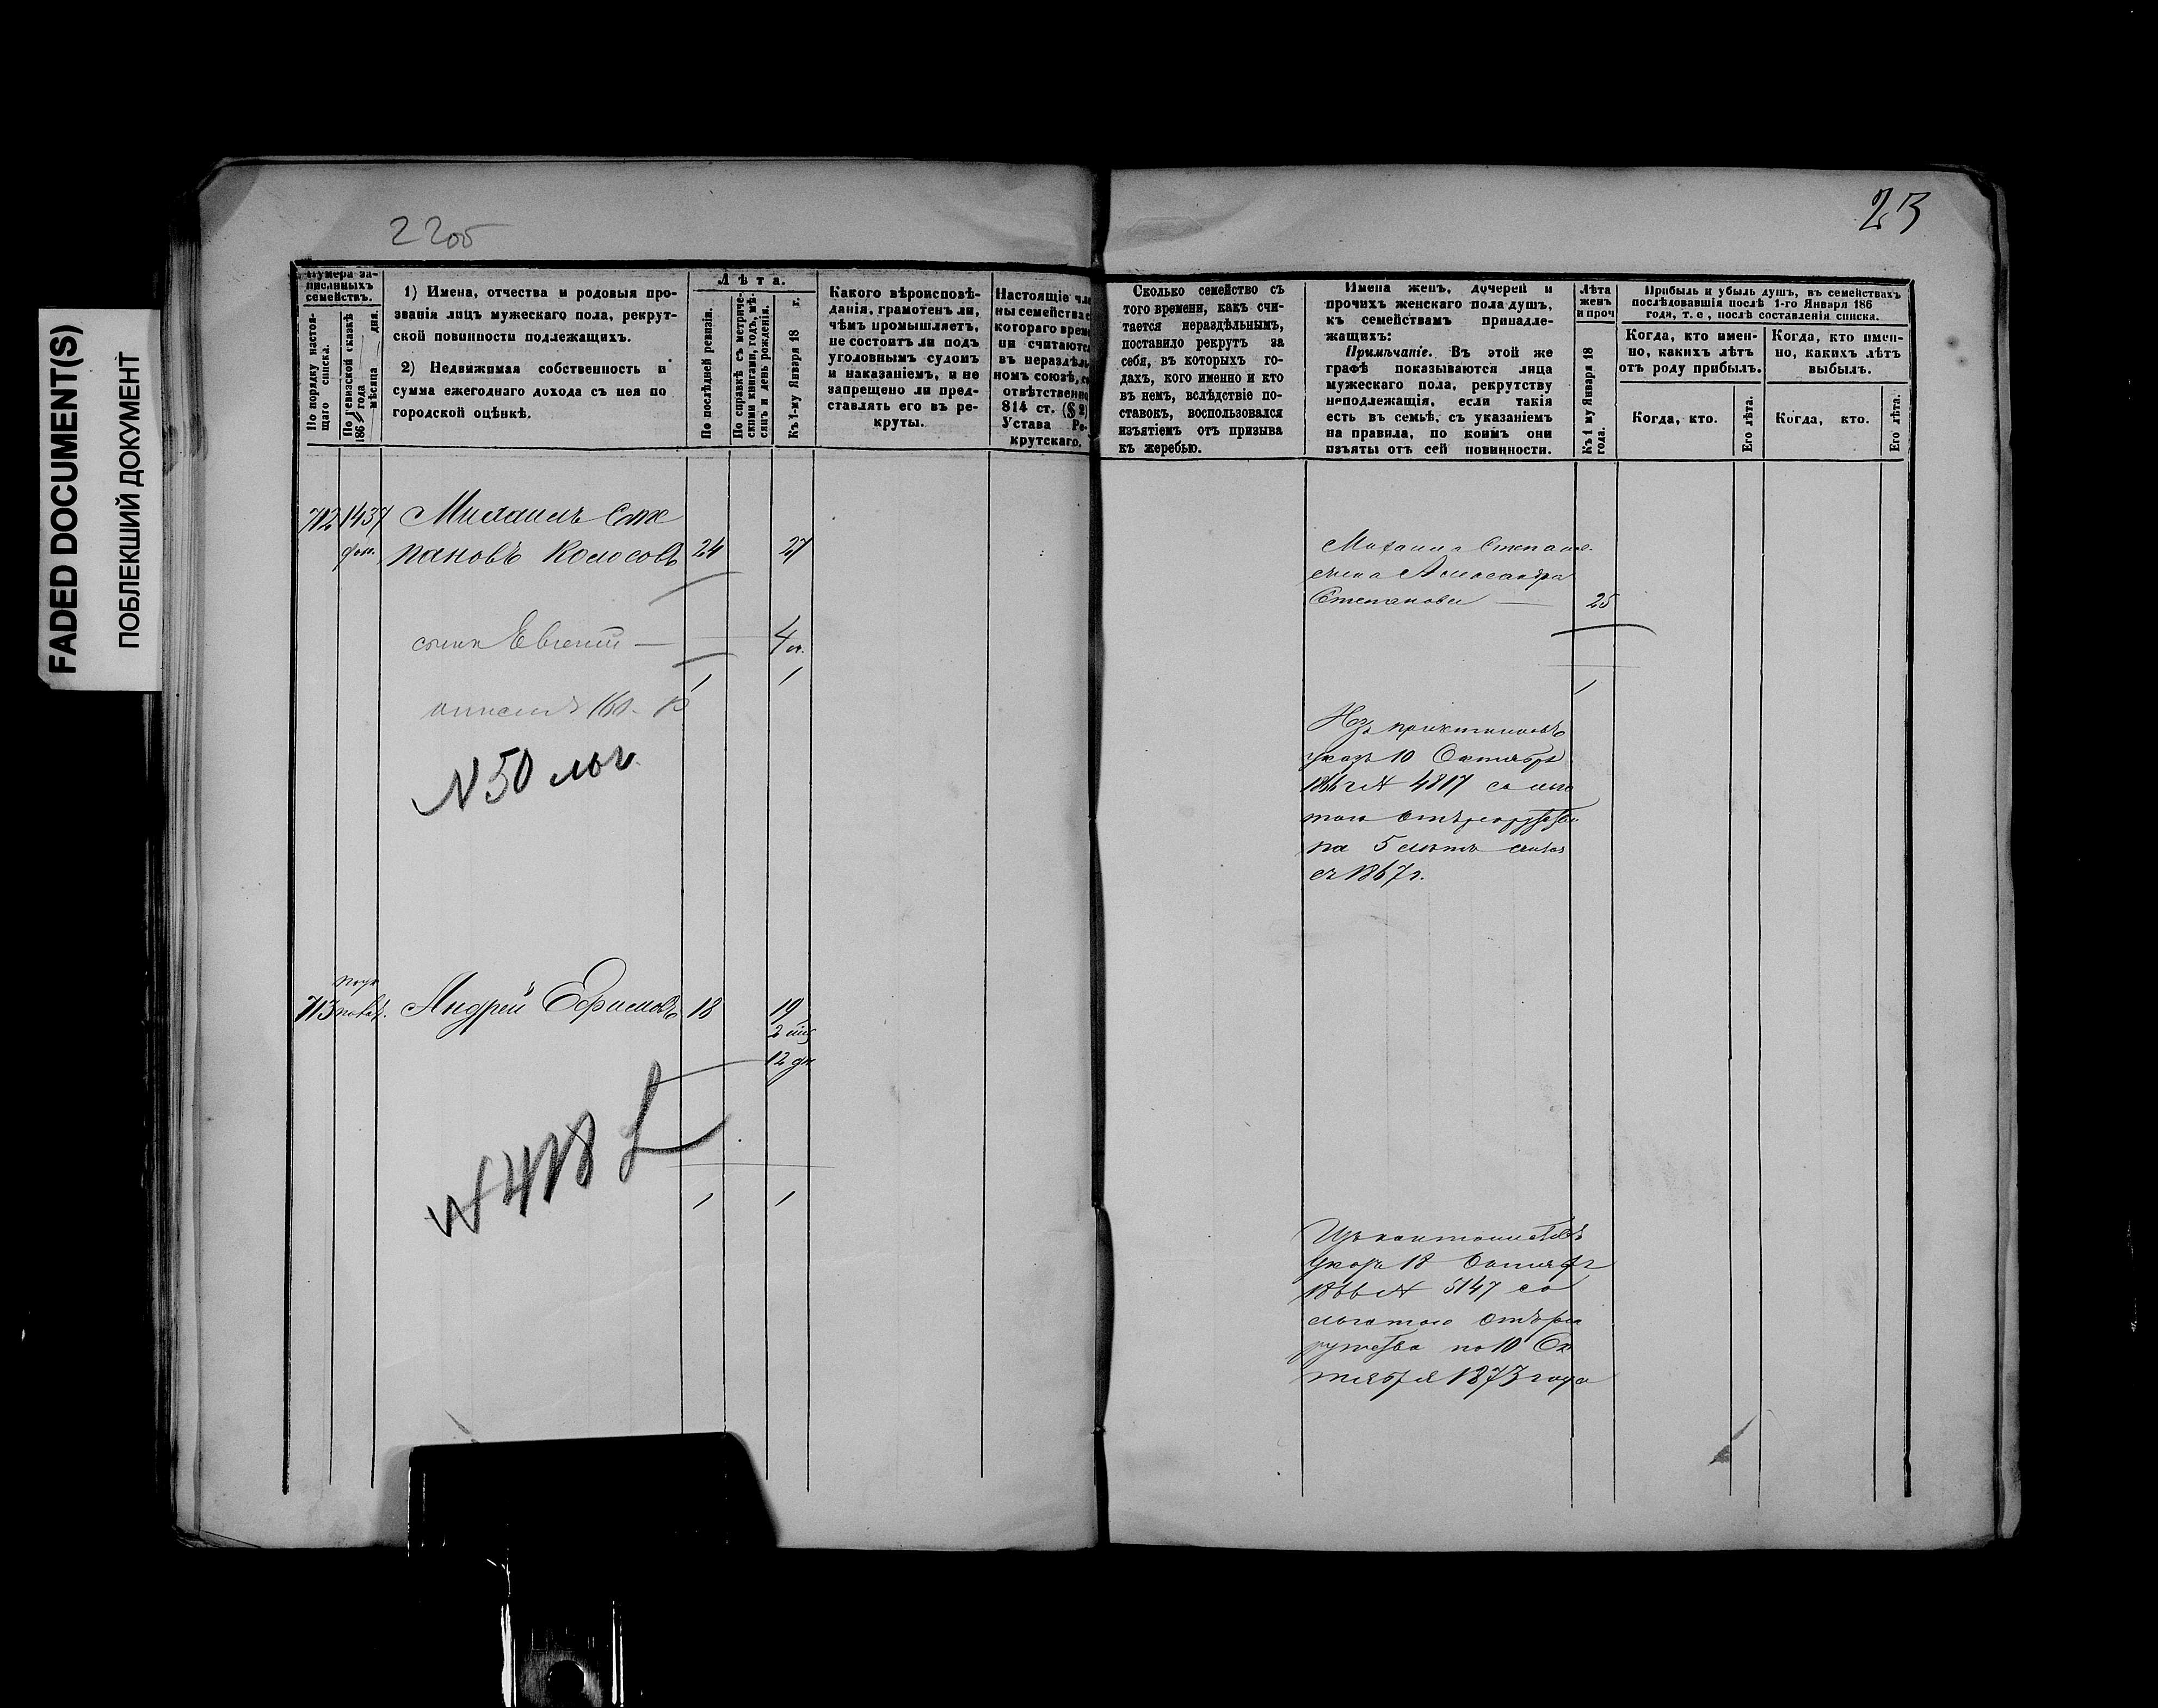 FADED DOCUMENT(S)
ПОБЛЕКШИЙ ДОКУМЕНТ
22об
23
Нумера за-
писанныхъ
семействъ.
По порядку настоя-
щаго списка.
По ревизской сказкѣ
186 года
мѣсяца дня.
1) Имена, отчества и родовыя про-
званія лицъ мужескаго пола, рекрут-
ской повинности подлежащихъ.
2) Недвижимая собственность и
сумма ежегоднаго дохода съ нея по
городской оцѣнкѣ.
Лѣта.
По послѣдней ревизіи.
По справкѣ съ метриче-
скими книгами, годъ, мѣ-
сяцъ и день рожденія.
Къ 1-му Января 18 г.
Какого вѣроисповѣ-
данія, грамотенъ ли,
чѣмъ промышляетъ,
не состоитъ ли подъ
уголовнымъ судомъ
и наказаніемъ, и не
запрещено ли пред-
ставлять его въ ре-
круты.
Настоящіе чле
ны семейства с
котораго време
ни считаются
въ нераздѣль
номъ союзѣ,
отвѣтственно
814 ст. (§ 2)
Устава Ре-
крутскаго.
Сколько семейство съ
того времени, какъ счи-
тается нераздѣльнымъ,
поставило рекрутъ за
себя, въ которыхъ го-
дахъ, кого именно и кто
въ немъ, вслѣдствіе по-
ставокъ, воспользовался
изъятіемъ отъ призыва
къ жеребью.
Имена женъ, дочерей и
прочихъ женскаго пола душъ,
къ семействамъ принадле-
жащихъ:
Примѣчаніе. Въ этой же
графѣ показываются лица
мужескаго пола, рекрутству
неподлежащія, если такія
есть въ семьѣ, съ указаніемъ
на правила, по коимъ они
изъяты отъ сей повинности.
Лѣта
женъ
и проч
Къ 1 му Января 18
года.
Прибыль и убыль душъ, въ семействахъ
послѣдовавшія послѣ 1-го Января 186
года, т. е., послѣ составленія списка.
Когда, кто имен-
но, какихъ лѣтъ
отъ роду прибылъ.
Когда, кто имен-
но, какихъ лѣтъ
выбылъ.
Когда, кто.
Его лѣта.
Когда, кто.
Его лѣта.
712 1437 Михаилъ Сте
доп. пановъ Колосовъ 24 27
сынъ Евгеній — 4 м.
1 1
N 50 льг
Михаила Степано.
жена Александра
Степанова — 25
1
Изъ
указъ 10 Октября
1866 г N 4817 со льго
тою отъ рекрутства
на 5 лѣтъ считая
съ 1867 г.
713 Андрей Ефимовъ 18 19
2 мѣс
12 дн
N 418
1 1
Изъ кантонистовъ
указъ 18 Октября
1866 N 5147 со
льготою отъ рек
рутства по 10 Ок
тября 1873 года